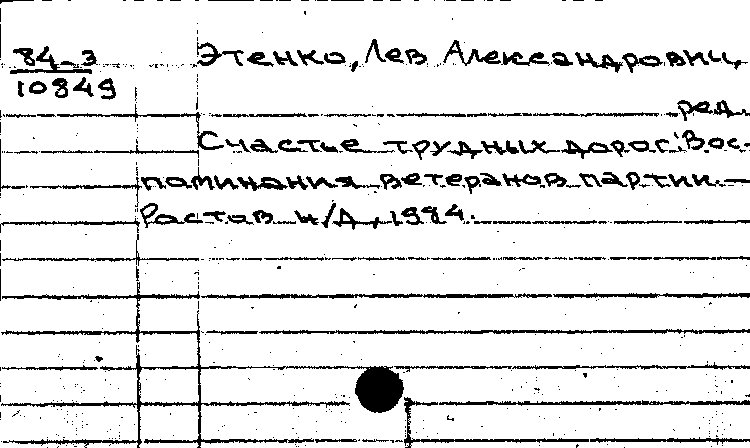 84-3
10849
Этенко, Лев Александрович,
ред.
Счастье трудных дорог: Вос-
поминания ветеранов партии.—
Ростов н/Д, 1984.